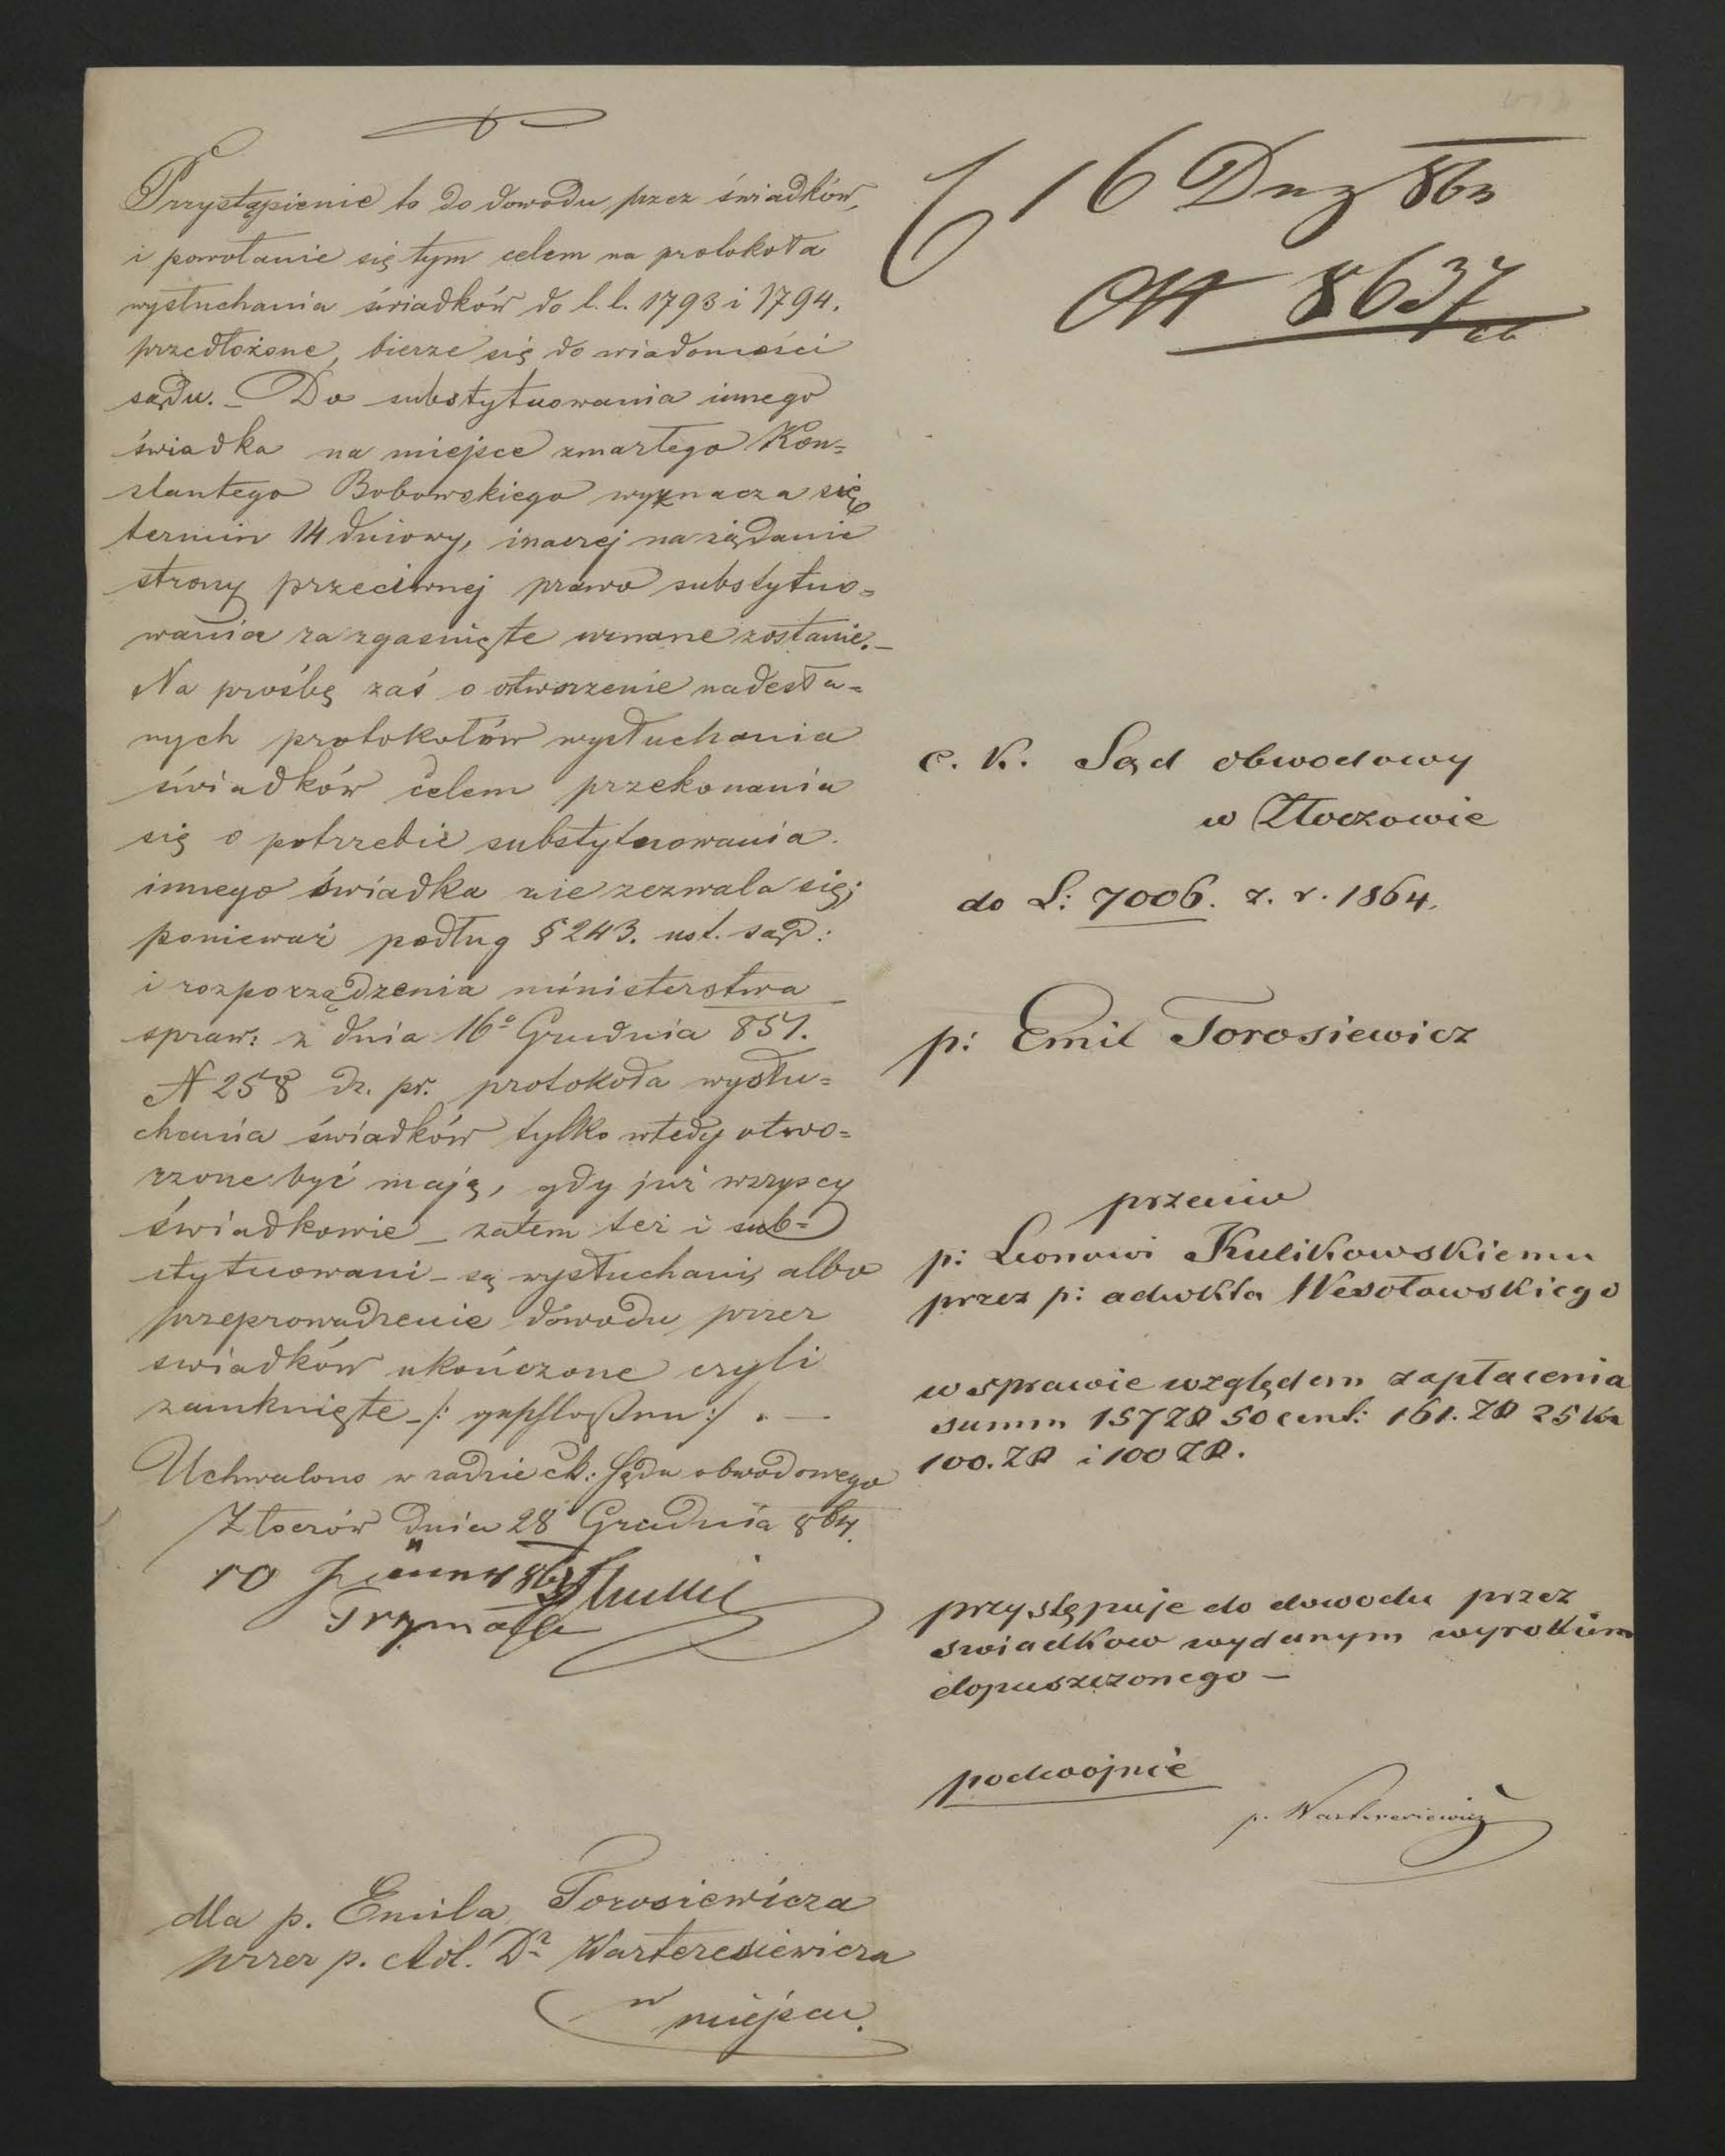 Przystąpienie to do dowodu przez świadków,
i powołanie się tym celem na protokoła
wysłuchania świadków do l. l. 1793 i 1794.
przedłożone, bierze się do wiadomości
sądu. – Do substytuowania innego
świadka na miejsce zmarłego Kon=
stantego Bobowskiego wyznacza się
termin 14 dniowy, inaczej na żądanie
strony przeciwnej prawo substytuo=
wania za zgasnięte uznane zostanie. –
Na prośbę zaś o otworzenie nadesła=
nych protokołów wysłuchania
świadków celem przekonania
się o potrzebie substytuowania
innego świadka nie zezwala się;
ponieważ podług § 243. ust. sąd:
i rozporządzenia ministerstwa
spraw: z dnia 16° Grudnia 857.
N 258 dz. pr. protokoła wysłu=
chania świadków tylko wtedy otwo=
rzone być mają, gdy już wszyscy
świadkowie – zatem też i sub=
stytuowani – są wysłuchani, albo
przeprowadzenie dowodu przez
swiadków ukończone czyli
zamknięte – /: geschloßen :/ . —
Uchwalono w radzie ck: Sądu obwodowego
Złoczów dnia 28 Grudnia 864.
10
Trzymała
dla p. Emila Torosiewicza
przez p. Ad. Dr Warteresiewicza
w miejscu.
16 Dez 863
8637
c. K. Sąd obwodowy
w Złoczowie
do L: 7006. z. r. 1864.
p: Emil Torosiewicz
przeciw
p: Leonowi Kulikowskiemu
przez p: adwokta Wesołowskiego
w sprawie względem zapłacenia
summ 157 ZR 50 cent: 161. ZR 25 Kr
100. ZR i 100 ZR.
przystępuje do dowodu przez
swiadkow wydanym wyrokiem
dopuszczonego –
podwojnie
p. Warteresiewicz